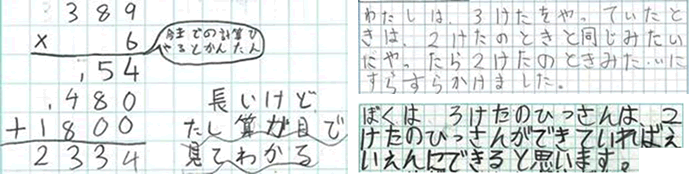 389
× 6
今までの計算で
やるとかんたん
154
1480
+1800
2334
長いけど
たし算が目で
見てわかる
わたしは、3けたをやっていたと
きは、2けたのときと同じみたい
にやったら2けたのときみたいに
すらすらかけました。
ぼくは 3けたのひっさんは、2
けたのひっさんができていればえ
いえんにできると思います。